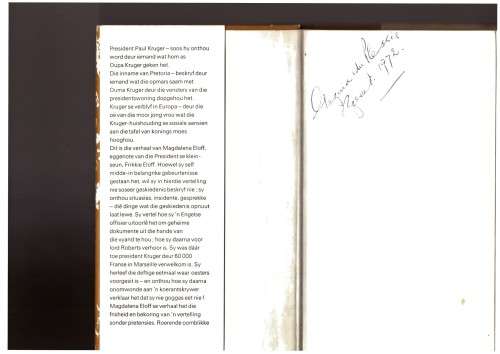 President Paul Kruger – soos hy onthou
word deur iemand wat hom as
Oupa Kruger geken het.
Die inname van Pretoria – beskryf deur
iemand wat die opmars saam met
Ouma Kruger deur die vensters van die
presidentswoning dopgehou het.
Kruger se verblyf in Europa – deur die
oë van die mooi jong vrou wat die
Kruger-huishouding se sosiale aansien
aan die tafel van konings moes
hooghou.
Dit is die verhaal van Magdalena Eloff,
eggenote van die President se klein-
seun, Frikkie Eloff. Hoewel sy self
midde-in belangrike gebeurtenisse
gestaan het, wil sy in hierdie vertelling
nie soseer geskiedenis beskryf nie ; sy
onthou situasies, insidente, gesprekke
– dié dinge wat die geskiedenis opnuut
laat lewe. Sy vertel hoe sy 'n Engelse
offisier uitoorlê het om geheime
dokumente uit die hande van
die vyand te hou ; hoe sy daarna voor
lord Roberts verhoor is. Sy was dáár
toe president Kruger deur 60 000
Franse in Marseille verwelkom is. Sy
herleef die deftige eetmaal waar oesters
voorgesit is – en onthou hoe sy daarna
onomwonde aan 'n koerantskrywer
verklaar het dat sy nie goggas eet nie !
Magdalena Eloff se verhaal het die
frisheid en bekoring van 'n vertelling
sonder pretensies. Roerende oomblikke
1972.